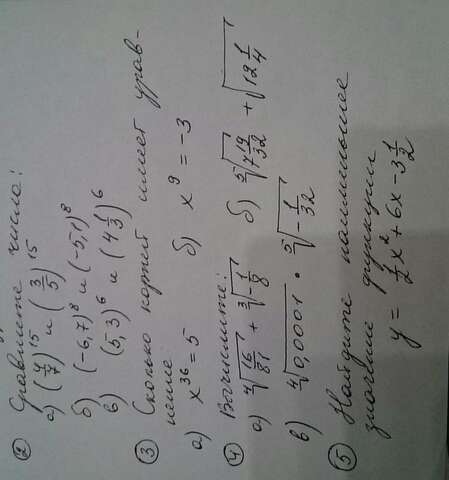 ② Сравните числа:
а) (4/7)^15 и (3/5)^15
б) (-6,7)^8 и (-5,1)^8
в) (5,3)^6 и (4 1/3)^6
③ Сколько корней имеет урав-
нение:
а) x^36 = 5   б) x^9 = -3
④ Вычислите:
а) ⁴√(16/81) + ³√(-1/8)   б) ⁵√(7 19/32) + √(12 1/4)
в) ⁴√(0,0001) · ⁵√(-1/32)
⑤ Найдите наименьшее
значение функции
y = 1/2 x^2 + 6x - 3 1/2